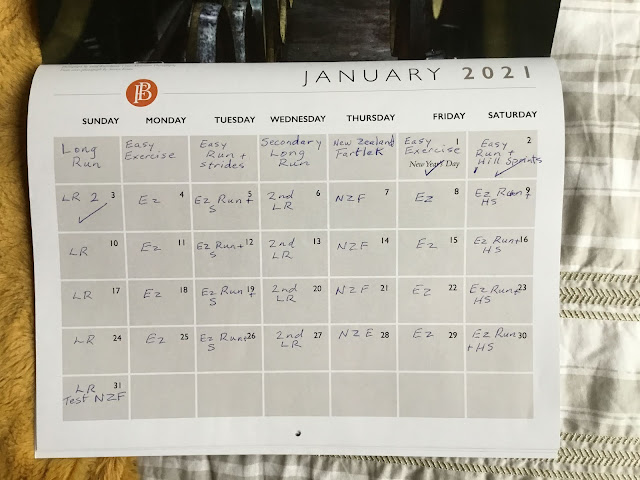 JANUARY 2021
SUNDAY MONDAY TUESDAY WEDNESDAY THURSDAY FRIDAY SATURDAY
Long Run
Easy Exercise
Easy Run + strides
Secondary Long Run
New Zealand Fartlek
Easy 1 Exercise
New Year's Day
Easy 2 Run + Hill Sprints
LR 2 3
Ez 4
Ez Run + S 5
2nd LR 6
NZF 7
Ez 8
Ez Run + HS 9
LR 10
Ez 11
Ez Run + S 12
2nd LR 13
NZF 14
Ez 15
Ez Run + HS 16
LR 17
Ez 18
Ez Run + S 19
2nd LR 20
NZF 21
Ez 22
Ez Run + HS 23
LR 24
Ez 25
Ez Run + S 26
2nd LR 27
NZE 28
Ez 29
Ez Run + HS 30
LR 31
Test NZF